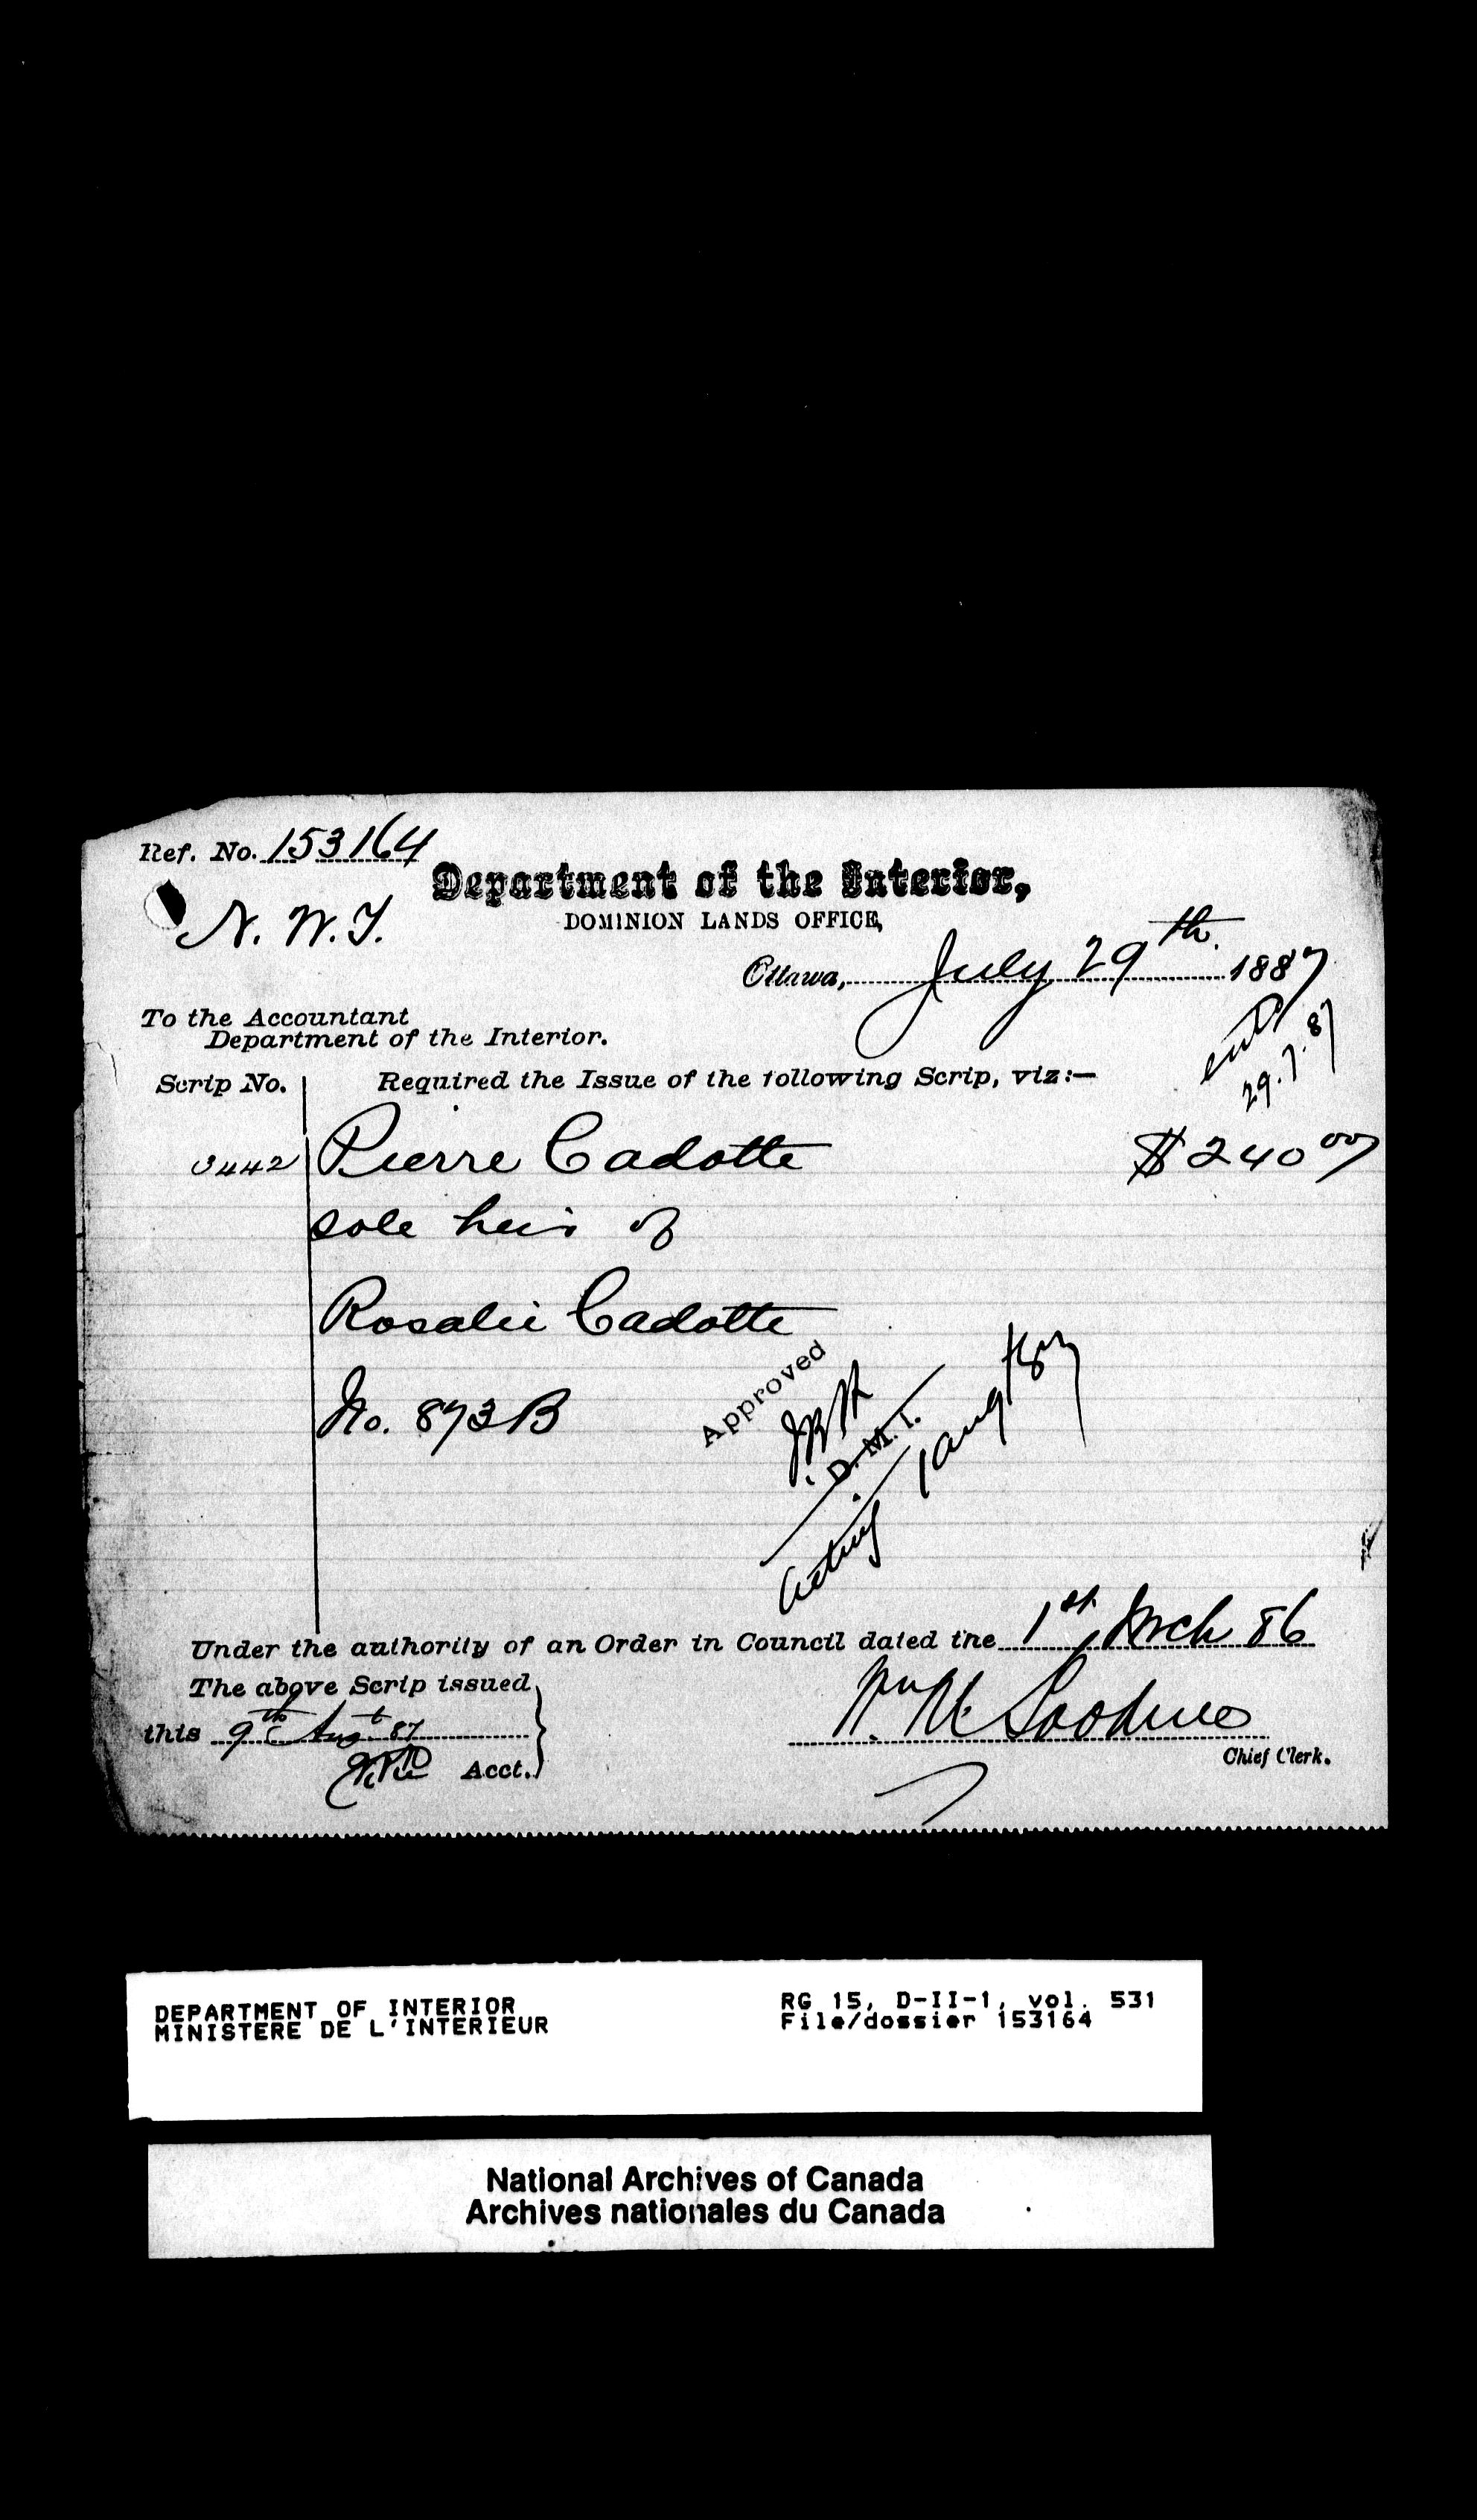 Ref. No. 153164
Department of the Interior,
DOMINION LANDS OFFICE,
N. W. T.
Ottawa, July 29th 1887
To the Accountant
Department of the Interior.
29.7.87
Scrip No. Required the Issue of the following Scrip, viz:—
Pierre Cadotte $240 00
sole heir of
Rosalie Cadotte
No. 873B
Approved
D. M. I.
Acting 1 Aug /87
Under the authority of an Order in Council dated the 1st Mch 86
The above Scrip issued
this 9th Augt 87
Acct.
Chief Clerk.
DEPARTMENT OF INTERIOR
MINISTERE DE L'INTERIEUR
RG 15, D-II-1, vol. 531
File/dossier 153164
National Archives of Canada
Archives nationales du Canada